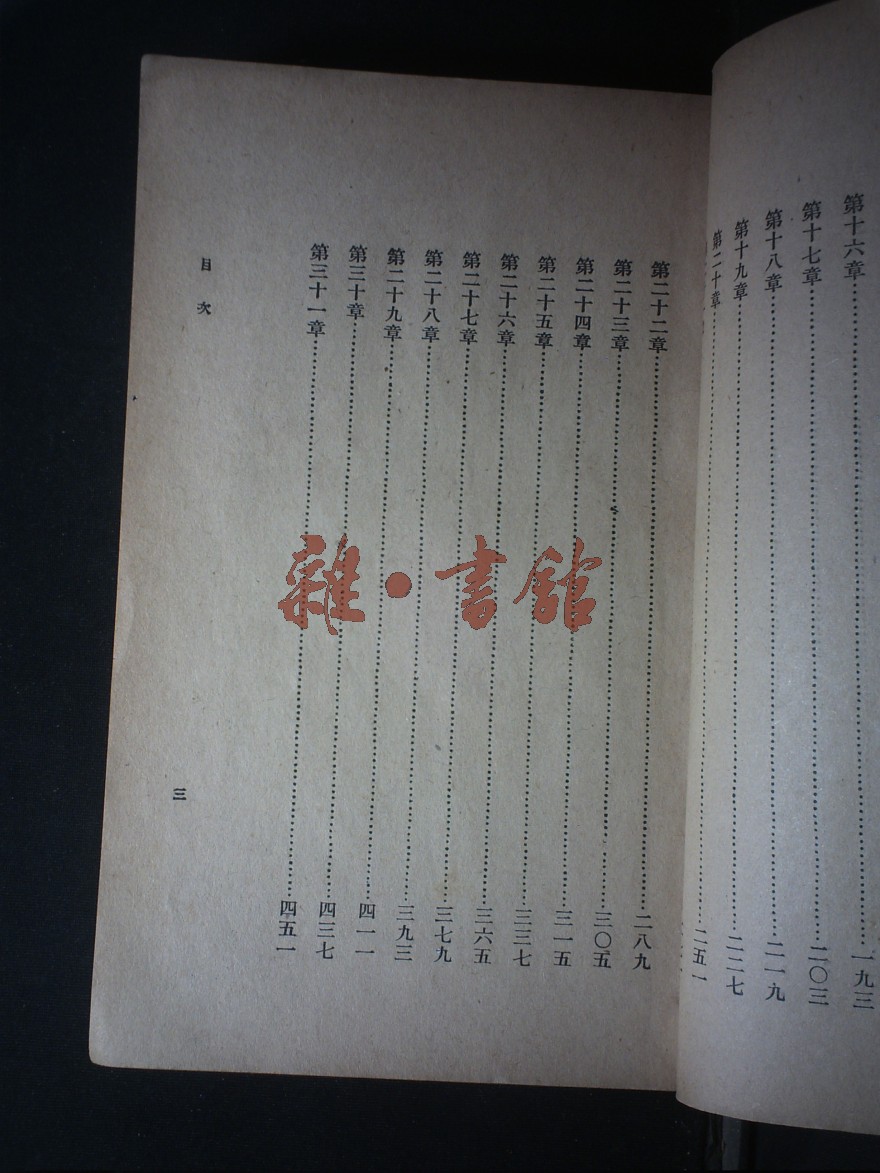 第十六章……一九三
第十七章……二〇三
第十八章……二一九
第十九章……二二七
第二十章……二五一
第二十二章……二八九
第二十三章……三〇五
第二十四章……三一五
第二十五章……三三七
第二十六章……三六五
第二十七章……三七九
第二十八章……三九三
第二十九章……四一一
第三十章……四三七
第三十一章……四五一
目次
三
雜·書館